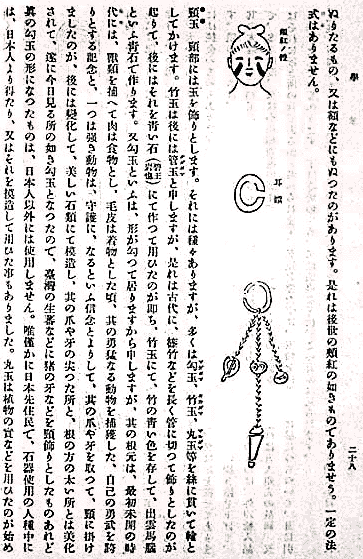 學
二十八
ぬりたるもの、又は額などにもぬつたのがあります。是れは後世の頬紅の如きものでありませう。一定の法
式はありません。
耳環
頸玉 頸部には玉を飾りとします。それには種々ありますが、多くは勾玉、竹玉、丸玉等を絲に貫いて輪と
してかけます。竹玉は後には管玉と申しますが、是れは古代に、篠竹などを長く管に切つて飾りとしたのが
起りて、後にはそれを青い石(碧玉岩也)にて作つて用ひたのが即ち、竹玉にて、竹の青い色を存して、出雲馬腦
といふ青石で作ります。又勾玉といふは、形が勾つて居りますから申しますが、其の根元は、最初未開の時
代には、獸類を捕へて肉は食物とし、毛皮は着物とした頃、其の勇猛なる動物を捕獲した、自己の勇武を誇
りとする記念と、一つは強き動物は、守護に、なるといふ信念とよりして、其の爪や牙を取つて、頸に掛け
ましたのが、後には變化して、美しい石類にて模造し、其の爪や牙の尖つた所と、根の方の太い所とは美化
されて、遂に今日見る所の如き勾玉となつたので、臺灣の生蕃などに猪の牙などを頸飾りとしたものあれど
眞の勾玉の形になつたものは、日本人以外には使用しません。唯僅かに日本先住民で、石器使用の人種中に
は、日本人より得たり、又はそれを模造して用ひた事もありました。丸玉は植物の實などを用ひたのが始め